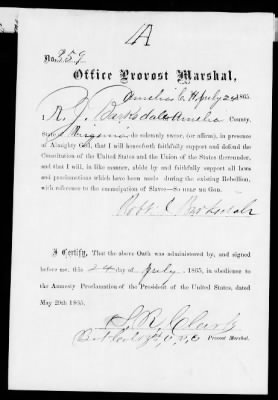 A
No. 259
Office Provost Marshal,
Amelia C. H. July 24 1865.
R. J. Barksdale Amelia County,
State of Virginia do solemnly swear, (or affirm), in presence
of Almighty God, that I will henceforth faithfully support and defend
the Constitution of the United States and the Union of the States thereunder,
and that I will, in like manner, abide by and faithfully support all laws
and proclamations which have been made during the existing Rebellion,
with reference to the emancipation of Slaves—SO HELP ME GOD.
Robt J Barksdale
I Certify, That the above Oath was administered by, and signed
before me, this 24 day of July 1865, in obedience to
the Amnesty Proclamation of the President of the United States, dated
May 29th 1865.
Clark
Provost Marshal.